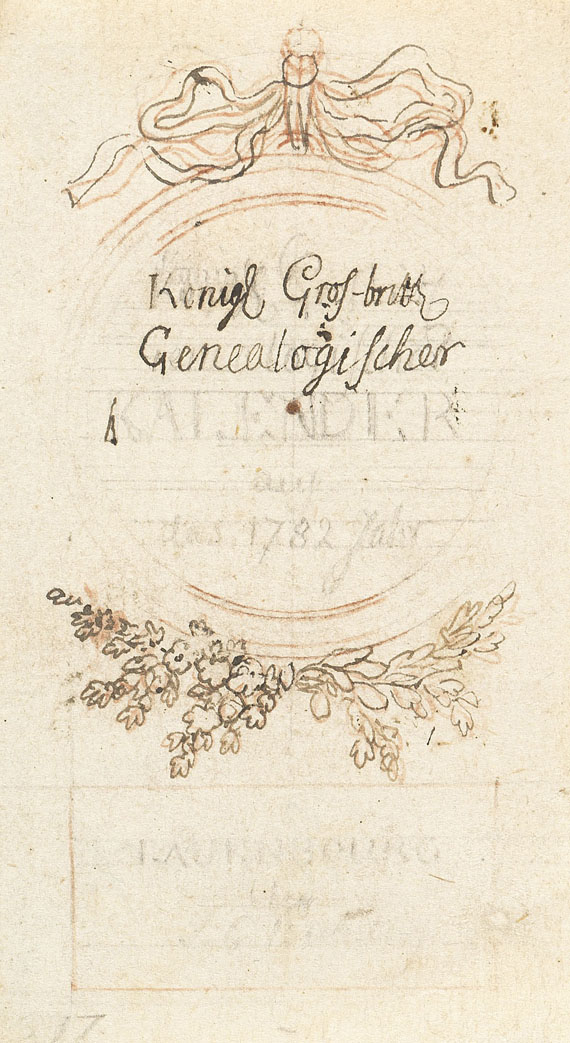 Königl Groſ-britt
Genealogiſcher
KALENDER
auf
das 1782 Jahr
LAUENBURG